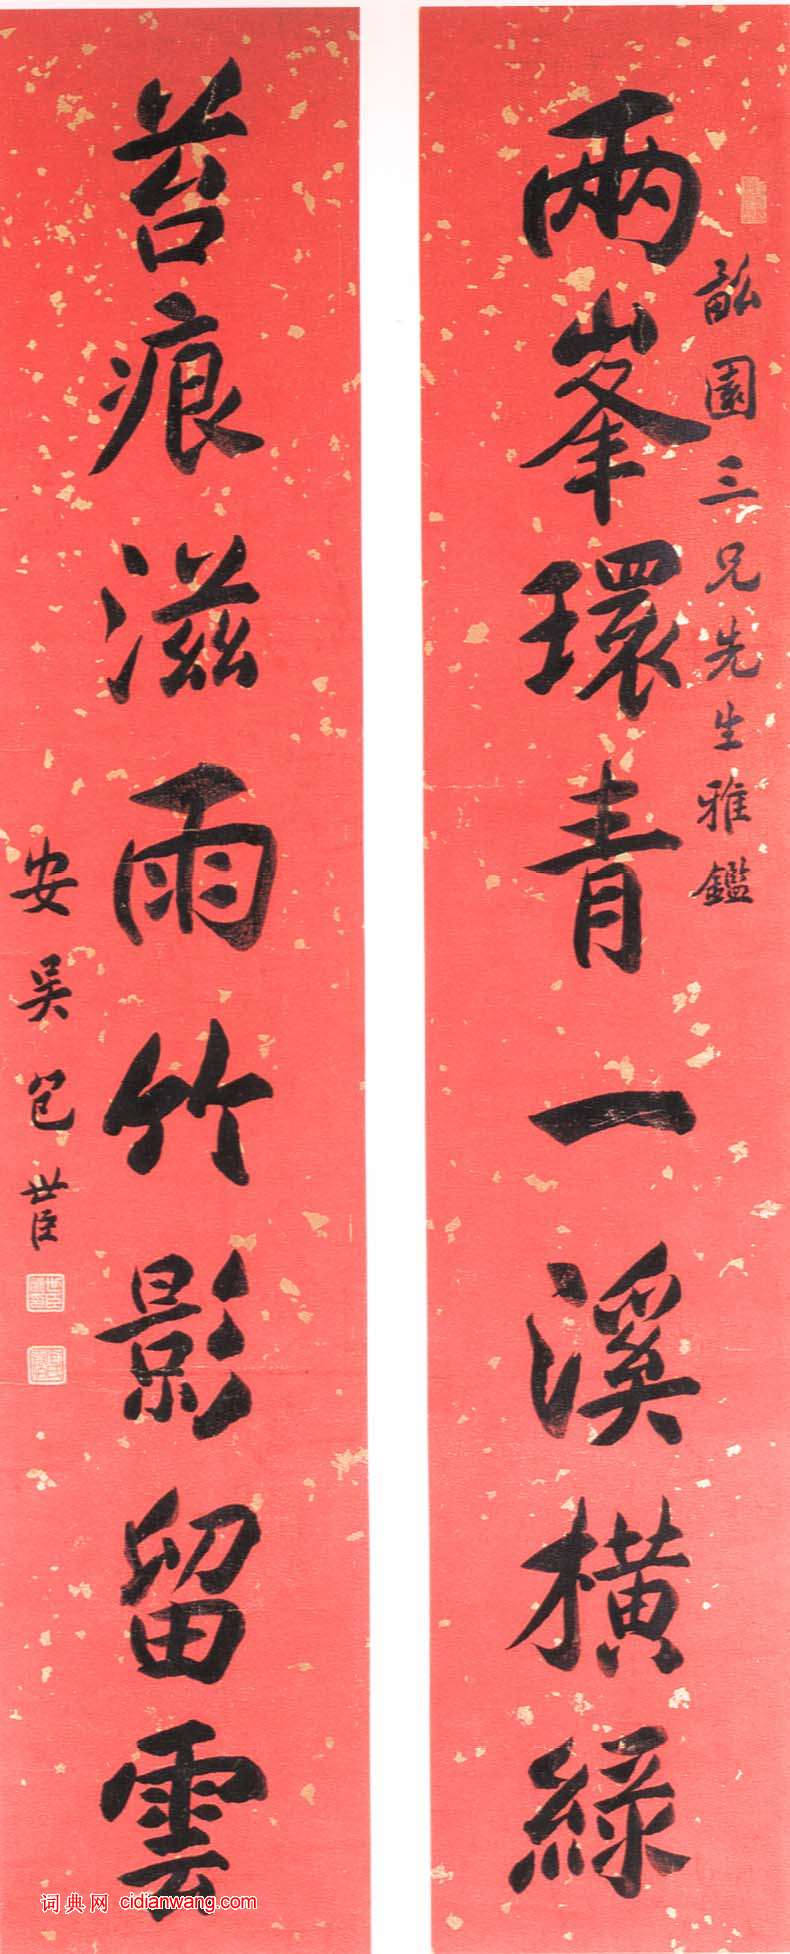 兩峯環青一溪橫綠
畆園三兄先生雅鑑
苔痕滋雨竹影留雲
安吳包世臣
词典网 cidianwang.com